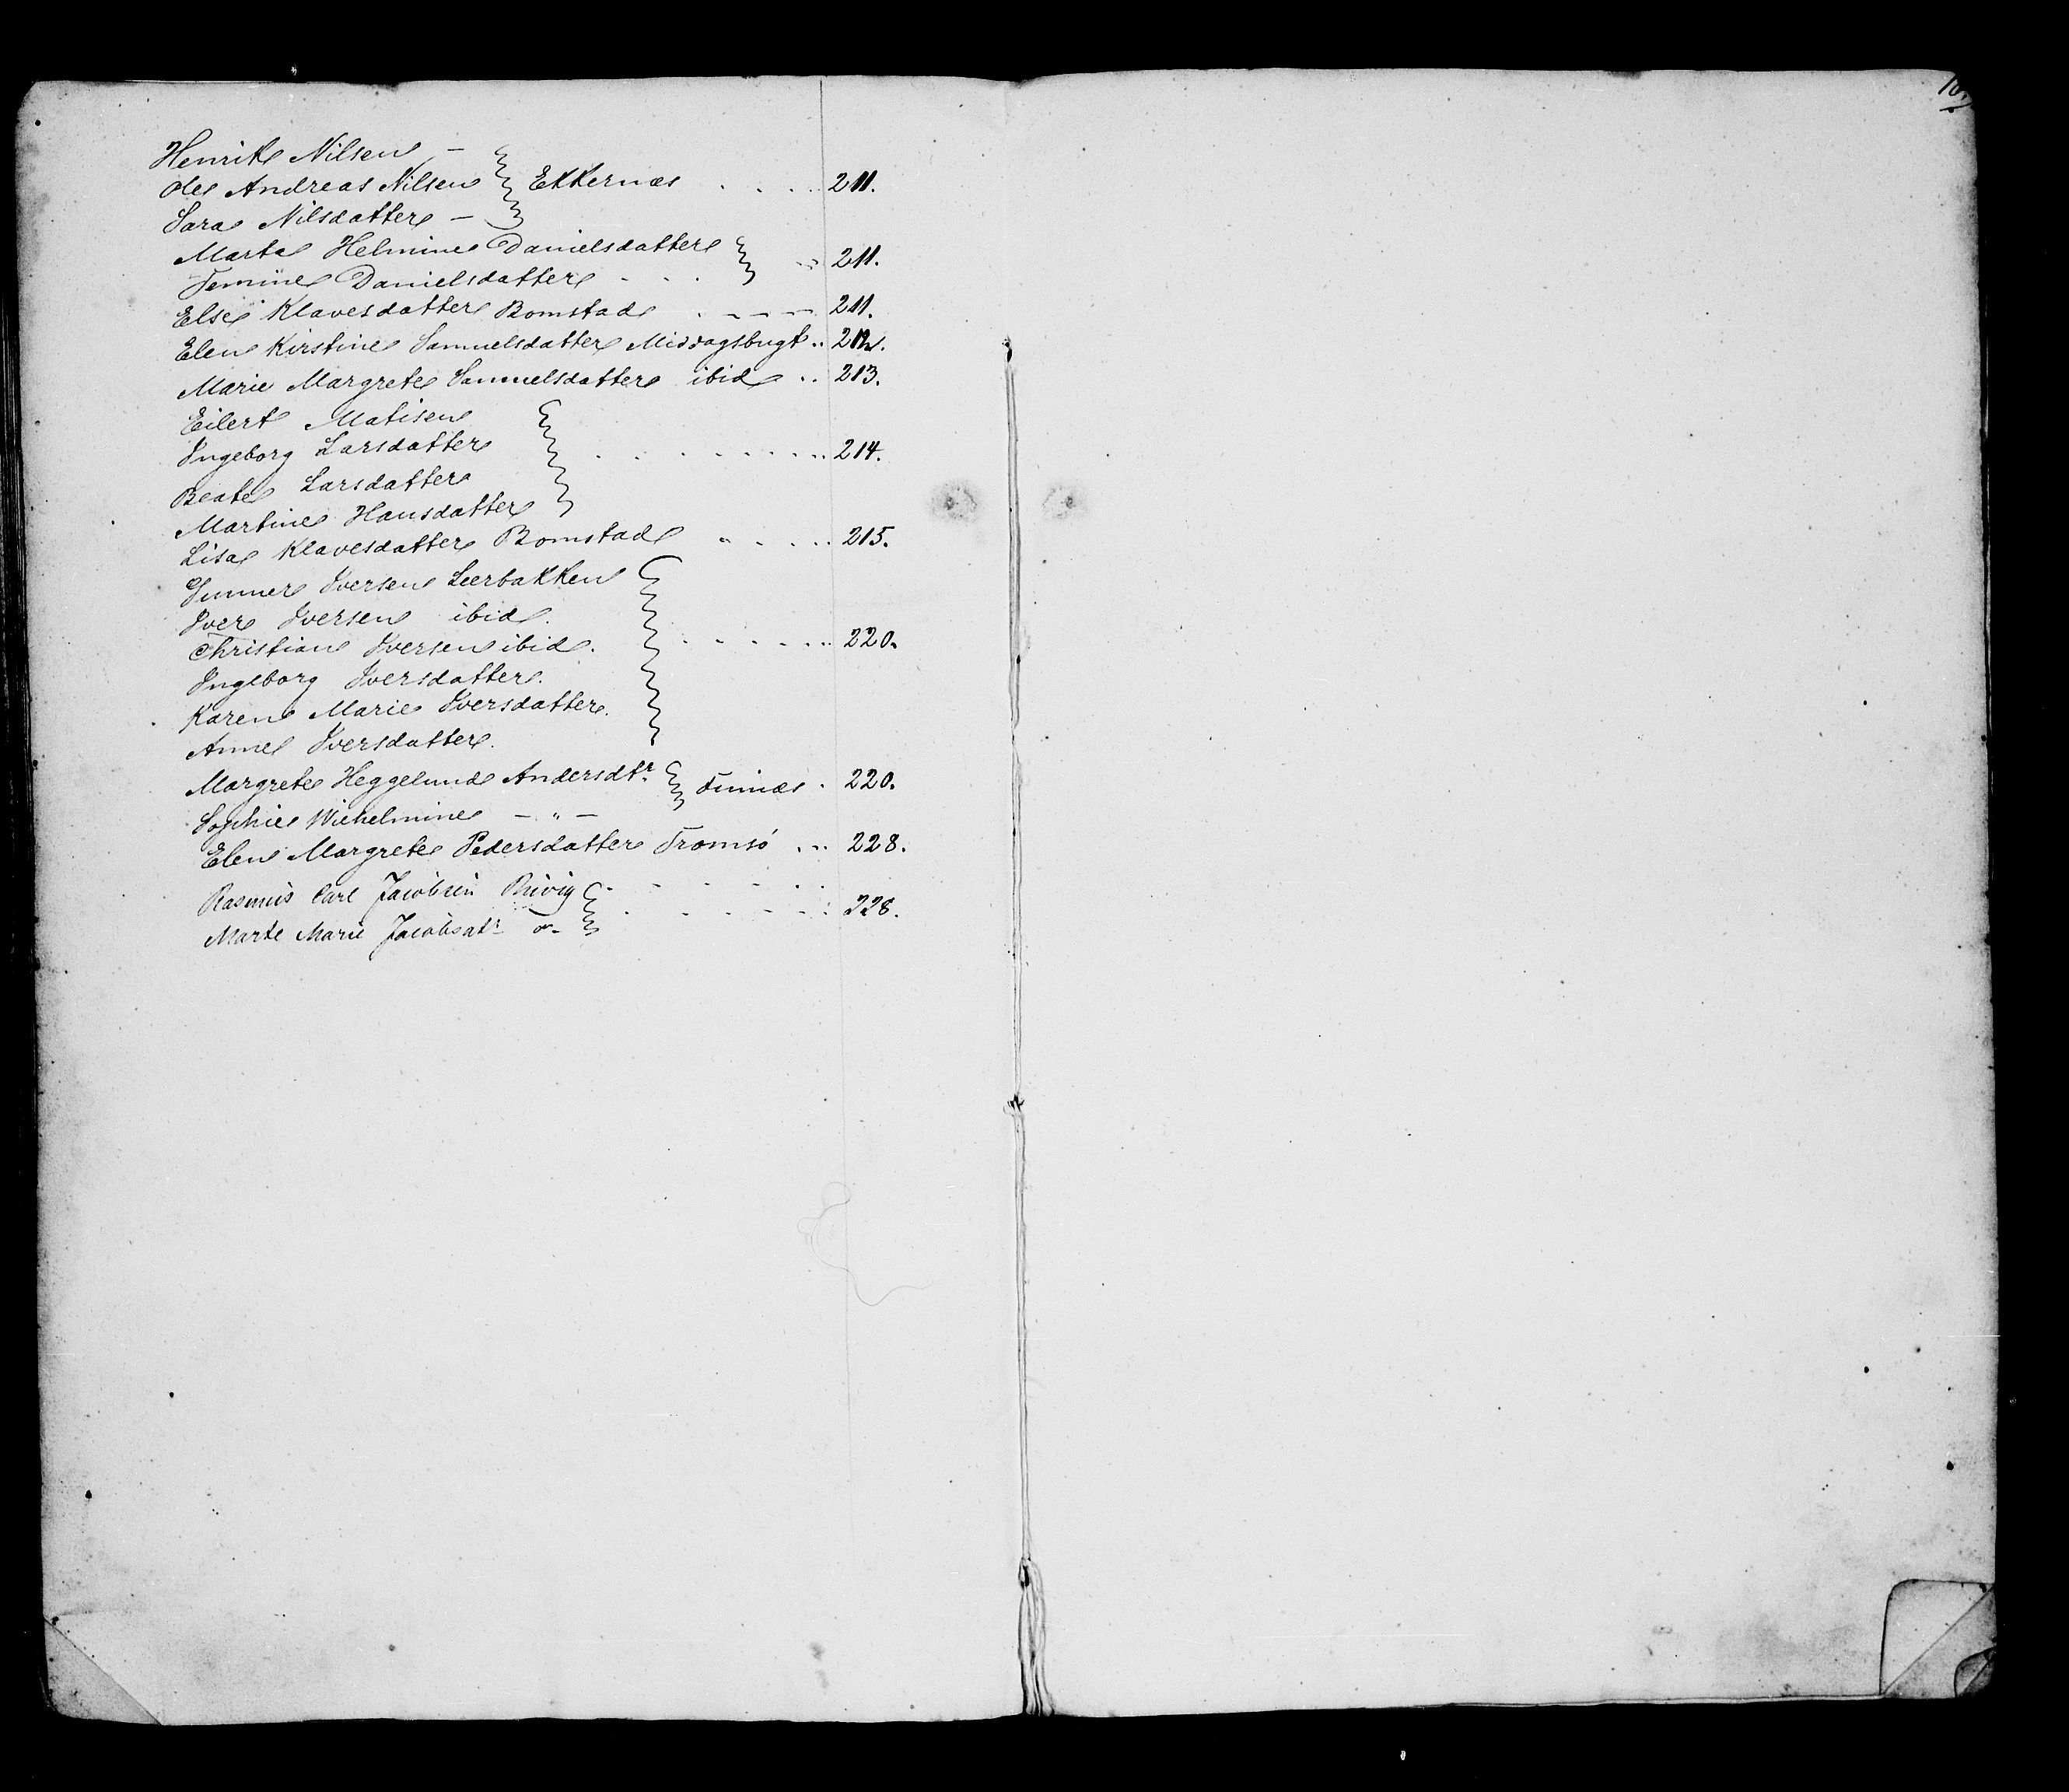 Henrik Nilsen –
Ole Andreas Nilsen Ekkernæs . . . . 211.
Sara Nilsdatter –
Marta Helmine Daniels datter .. 211.
Jemine Danielsdatter . . .
Else Klavesdatter Bomstad . – – – 211.
Elen Kirstine Samuelsdatter Middagsbugt .. 212.
Marie Margrete Samuelsdatter ibid .. 213.
Eilert Matisen
Ingeborg Larsdatter . . . . . . . . 214.
Beate Larsdatter
Martine Hansdatter
Lisa Klavesdatter Bomstad " . . . . 215.
Gunner Iversen Leerbakken
Iver Iversen ibid.
Christian Iversen ibid. . . . . . . . 220.
Ingeborg Iversdatter.
Karen Marie Iversdatter.
Anne Iversdatter.
Margrete Heggelund Andersdtr. Finnæs . 220.
Sophie Wilhelmine – " –
Elen Margrete Pedersdatter Tromsö ... 228.
Rasmus Carl Jacobsen . . . . . .
Marte Marie Jacobsdtr do– . . . . . . 228.